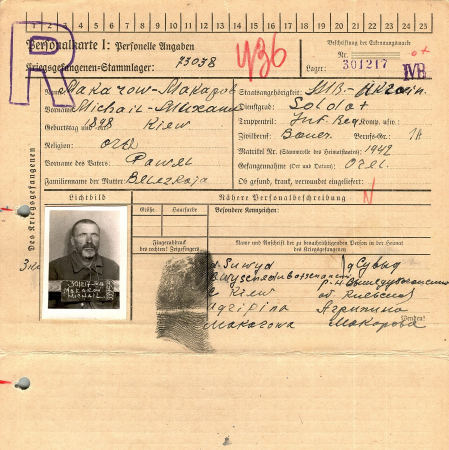 1 2 3 4 5 6 7 8 9 10 11 12 13 14 15 16 17 18 19 20 21 22 23 24 25
R
Personalkarte I: Personelle Angaben
Kriegsgefangenen-Stammlager: 73038
436
Beschriftung der Erkennungsmarke
Nr. 301217
Lager: IVB
Des Kriegsgefangenen
Name: Makarow-Макаров
Vorname: Michail-Михаил
Geburtstag und -ort: 1898 Kiew
Religion: orth
Vorname des Vaters: Pawel
Familienname der Mutter: Belezkaja
Staatsangehörigkeit:
Dienstgrad: Soldat
Truppenteil: Inf. Reg. Komp. usw.:
Zivilberuf: Bauer Berufs-Gr.:
Matrikel Nr. (Stammrolle des Heimatstaates): 1942
Gefangennahme (Ort und Datum): Orel
Ob gesund, krank, verwundet eingeliefert:
N
Lichtbild
Nähere Personalbeschreibung
Größe
Haarfarbe
Besondere Kennzeichen:
Fingerabdruck
des rechten! Zeigefingers
Name und Anschrift der zu benachrichtigenden Person in der Heimat
des Kriegsgefangenen
301217
MAKAROW
MICHAIL
Kiew
Agripina Агрипина
Makarowa Макарова
Wenden!